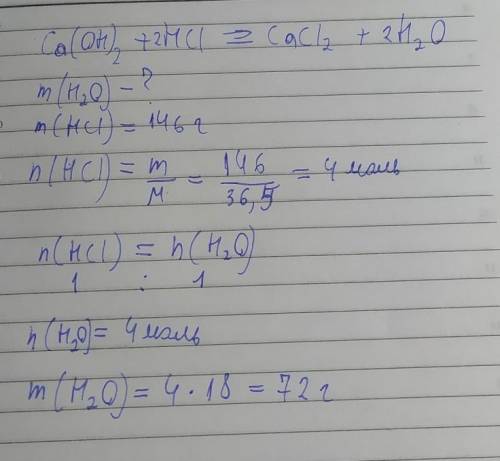 Ca(OH)₂ + 2HCl = CaCl₂ + 2H₂O
m(H₂O) - ?
m(HCl) = 146 г
n(HCl) = m/M = 146/36,5 = 4 моль
n(HCl) = n(H₂O)
1 : 1
n(H₂O) = 4 моль
m(H₂O) = 4 · 18 = 72 г